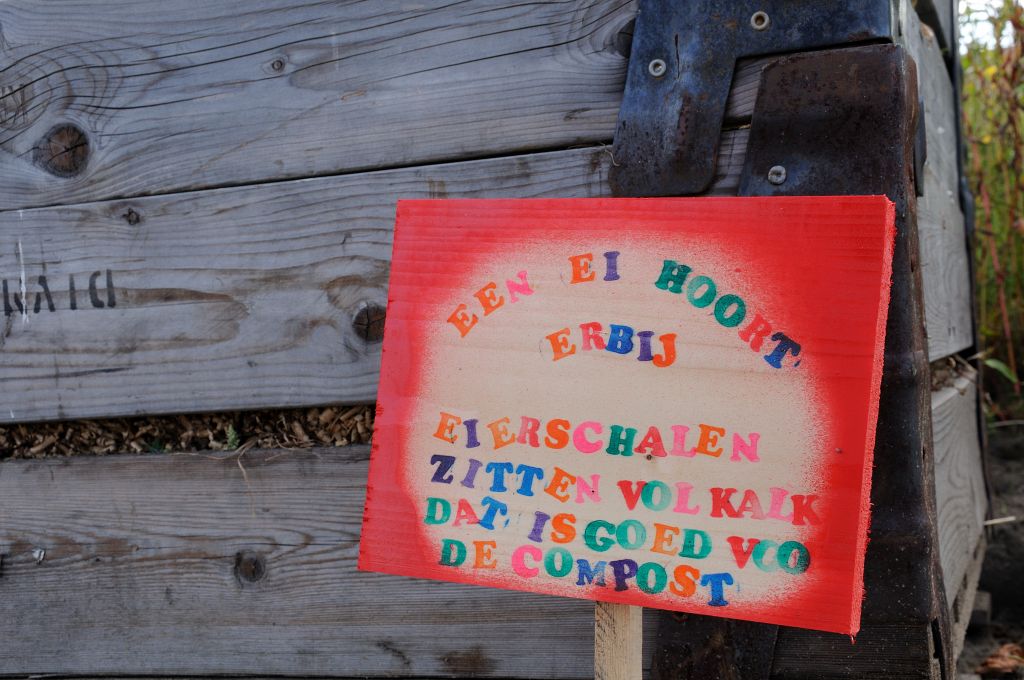 EEN EI HOORT
ERBIJ
EIERSCHALEN
ZITTEN VOL KALK
DAT IS GOED VOO
DE COMPOST